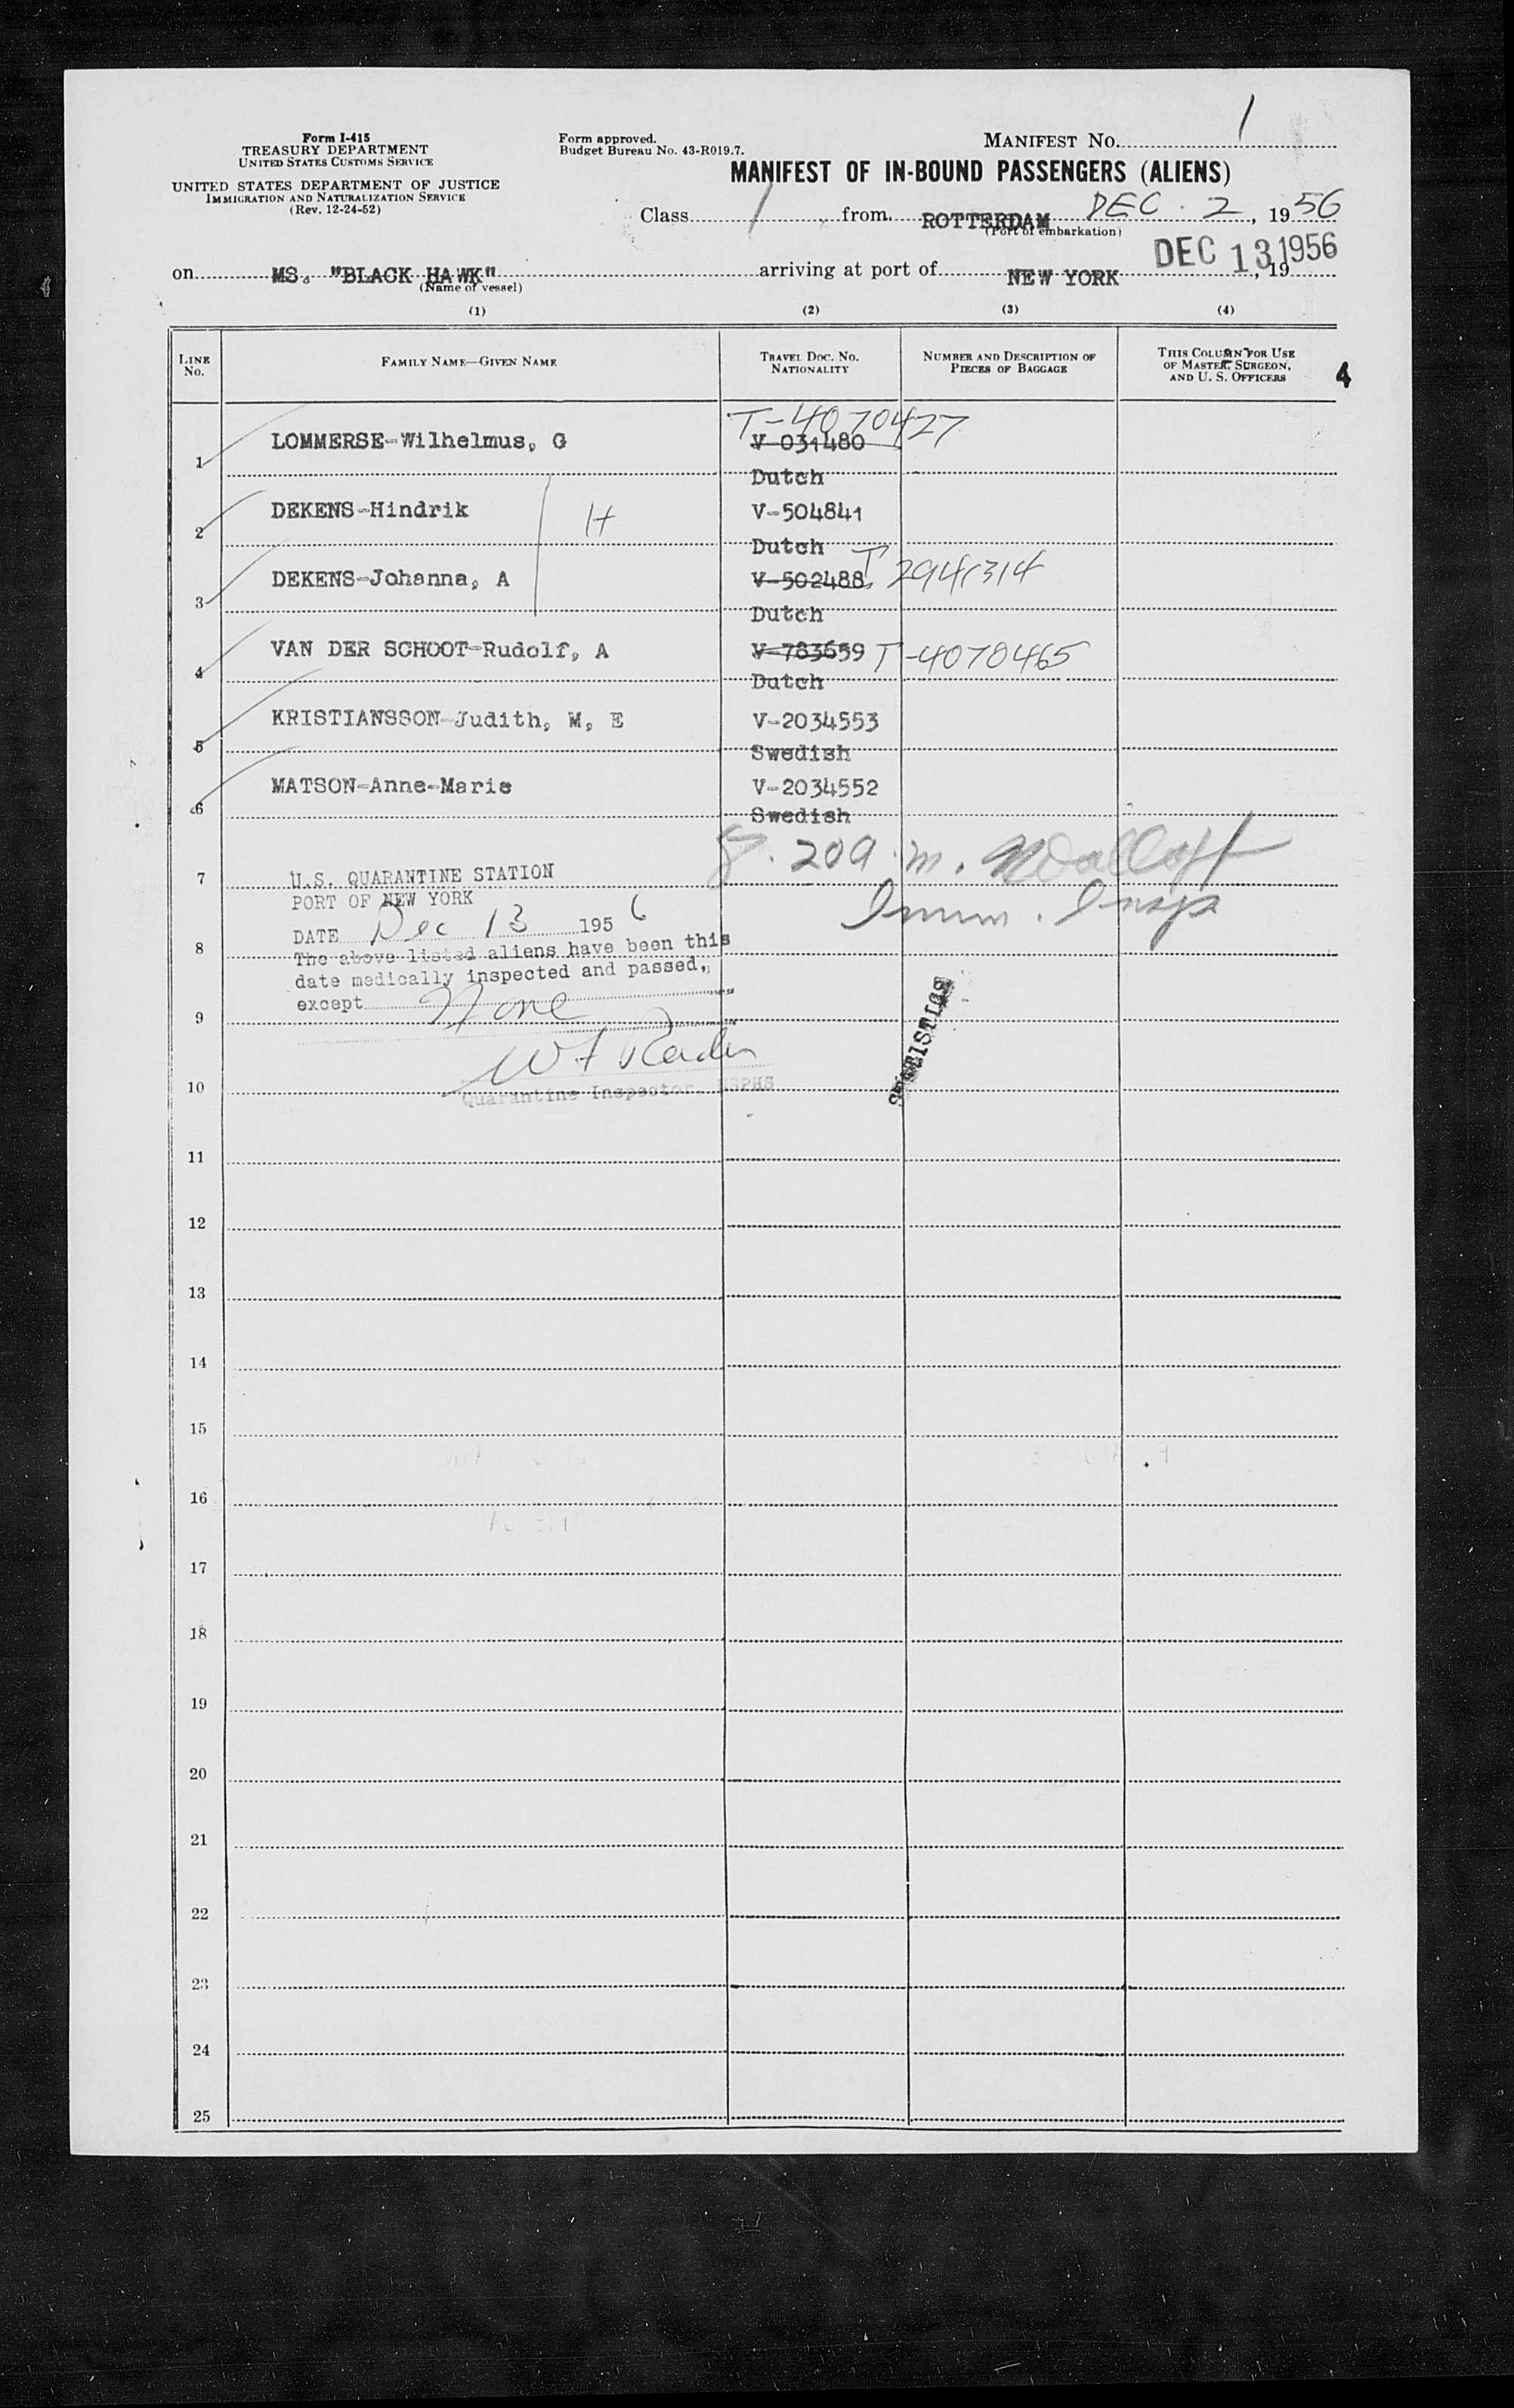 1
Form I-415
TREASURY DEPARTMENT
UNITED STATES CUSTOMS SERVICE
UNITED STATES DEPARTMENT OF JUSTICE
IMMIGRATION AND NATURALIZATION SERVICE
(Rev. 12-24-52)
Form approved.
Budget Bureau No. 43-R019.7.
MANIFEST No.
MANIFEST OF IN-BOUND PASSENGERS (ALIENS)
Class 1 from ROTTERDAM DEC. 2, 1956
(Port of embarkation)
on MS. "BLACK HAWK" arriving at port of NEW YORK DEC 13 1956, 19
(Name of vessel)
(1) (2) (3) (4)
LINE No. FAMILY NAME—GIVEN NAME TRAVEL DOC. NO. NATIONALITY NUMBER AND DESCRIPTION OF PIECES OF BAGGAGE THIS COLUMN FOR USE OF MASTER, SURGEON, AND U. S. OFFICERS 4
T-4070427
1 LOMMERSE-Wilhelmus, G V-031480
Dutch
2 DEKENS-Hindrik H V-504841
Dutch
3 DEKENS-Johanna, A V-502488 T 2941314
Dutch
4 VAN DER SCHOOT-Rudolf, A V-783659 T-4070465
Dutch
5 KRISTIANSSON-Judith, M, E V-2034553
Swedish
6 MATSON-Anne-Marie V-2034552
Swedish
209 m.
Imm. Insp
7 U.S. QUARANTINE STATION
PORT OF NEW YORK
DATE Dec 13 1956
8 The above listed aliens have been this
date medically inspected and passed,
except None
9
10 Quarantine Inspector, USPHS
STATISTICS
11
12
13
14
15
16
17
18
19
20
21
22
23
24
25